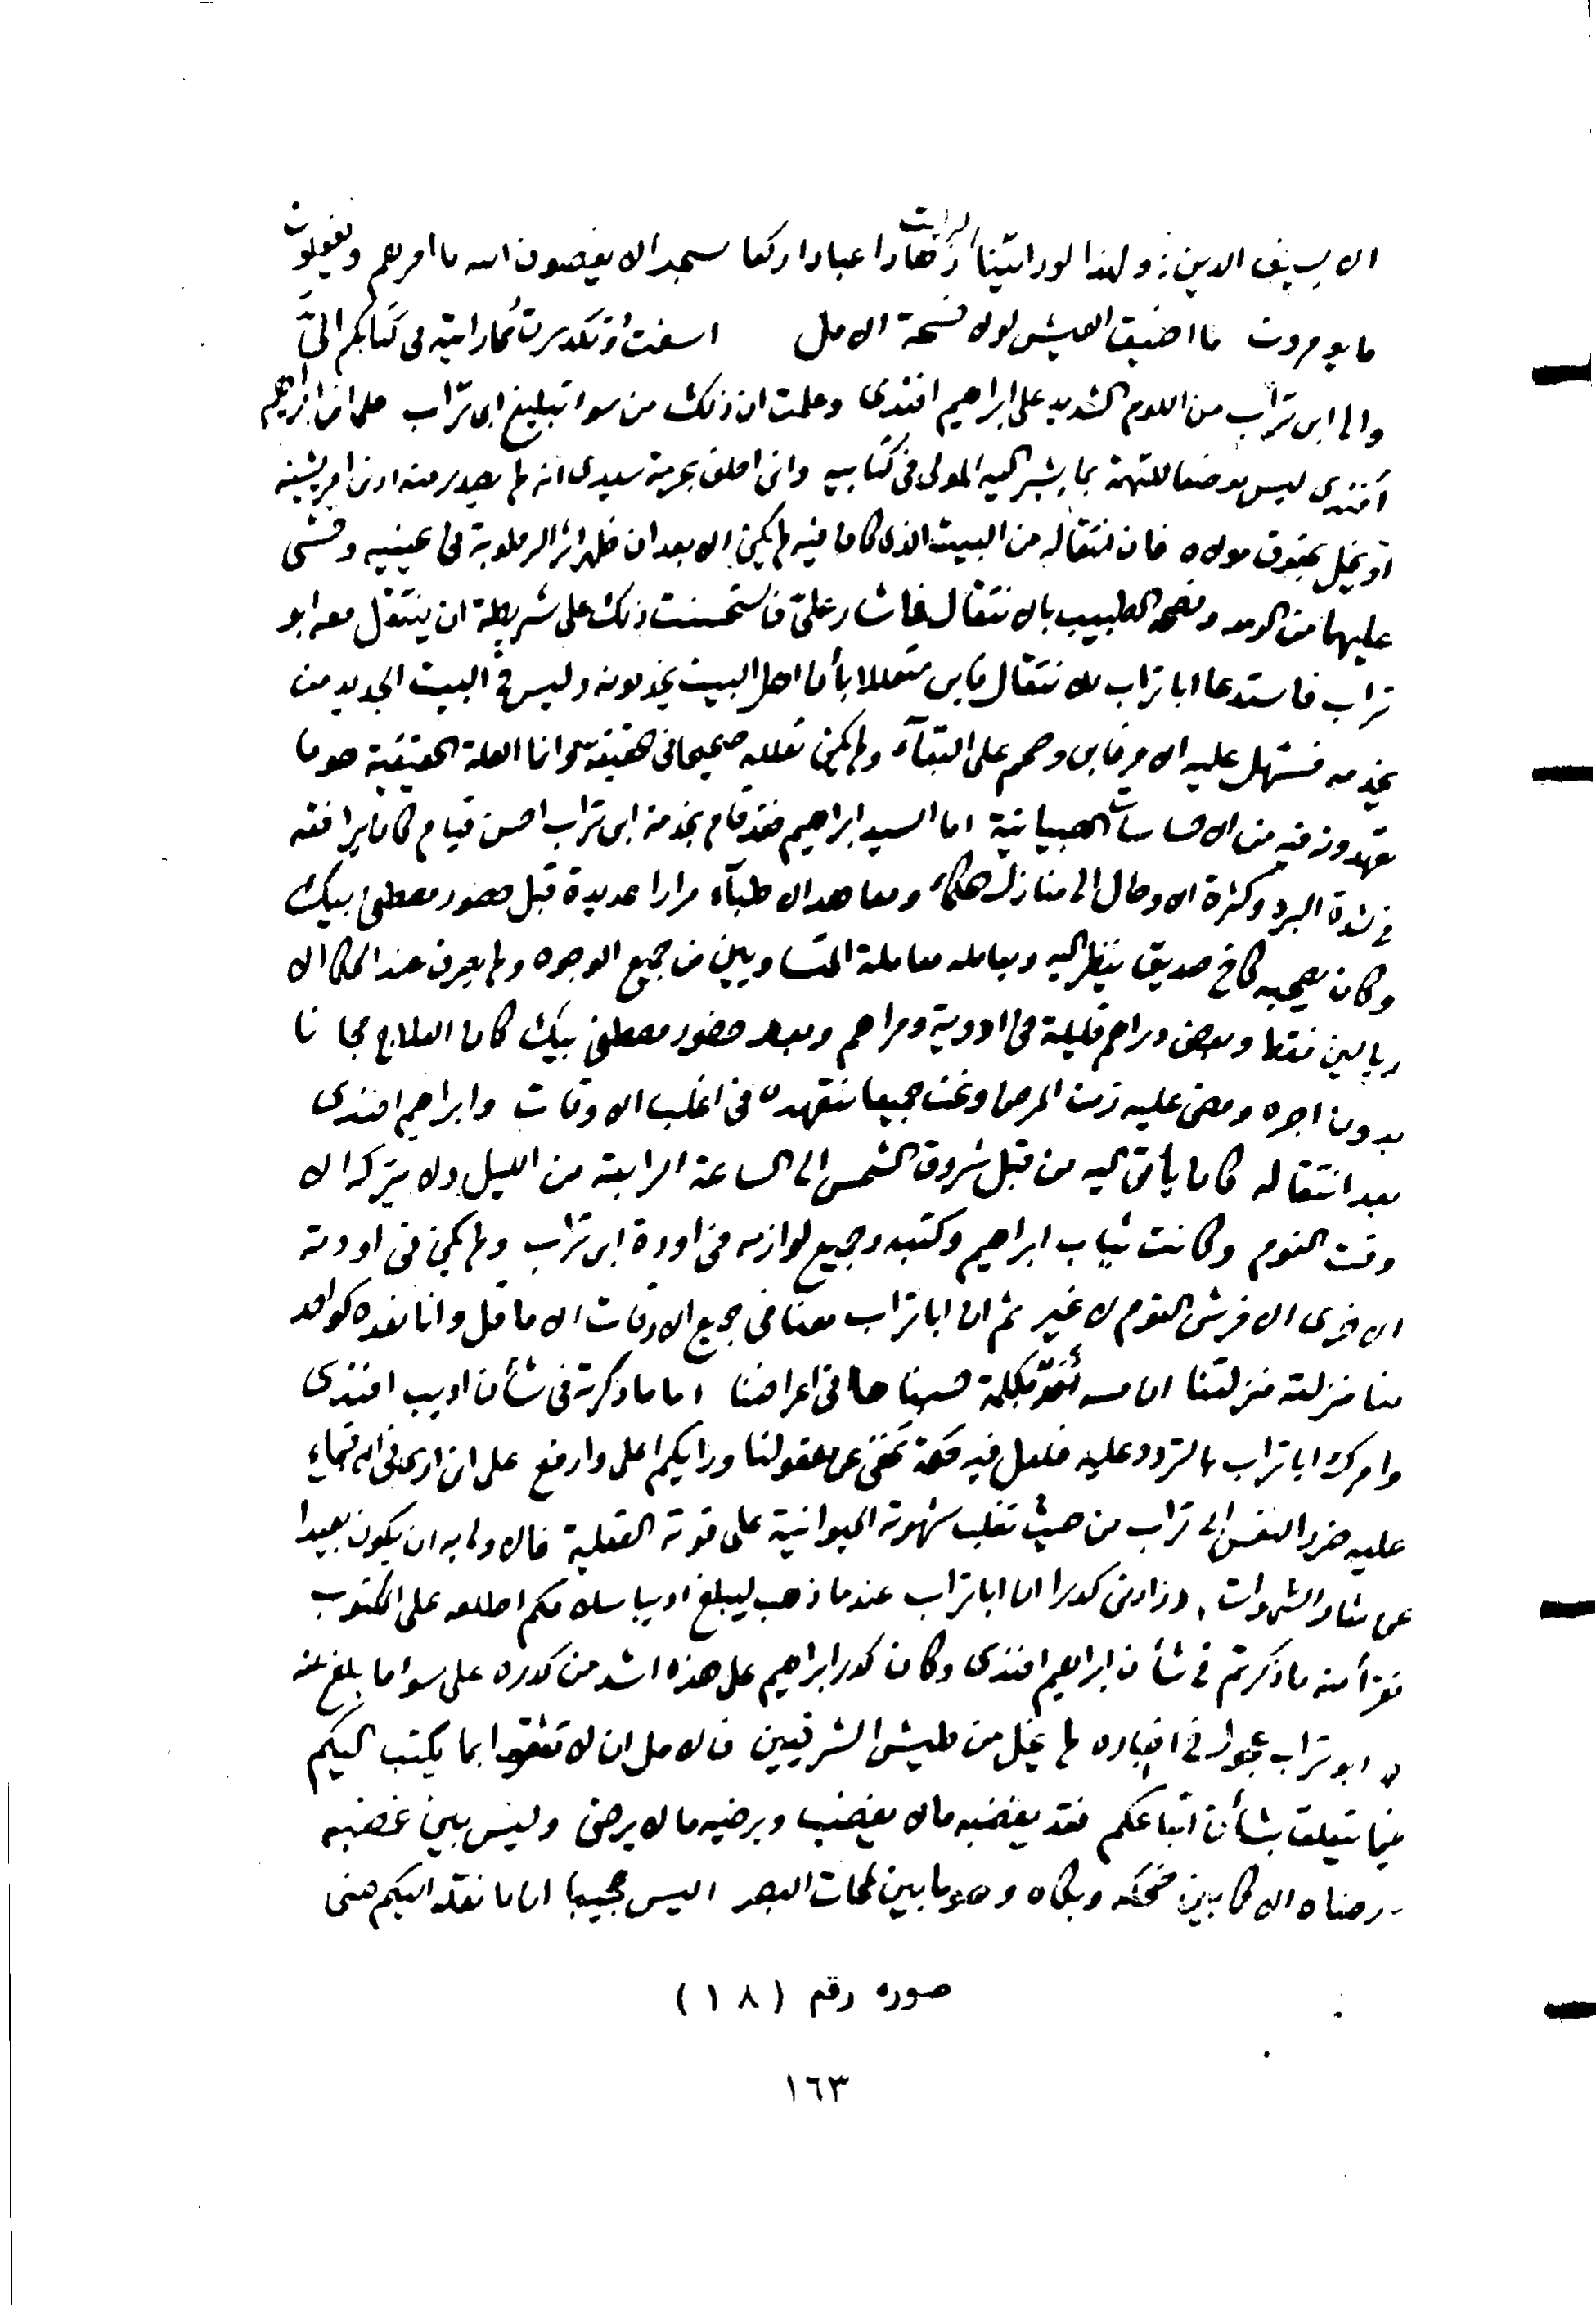 الا بسيف الدين ولهذا لو رأيتنا لرأيت زهادا عبادا ركعا سجدا لا يعصون الله ما امرهم ويفعلون
ما يؤمرون ما اضيق العيش لولا فسحة الامل اسفت وتكدرت مما رايته في كتابكم اليّ
والى ابى تراب من اللوم الشديد على ابراهيم افندى وعلمت ان ذلك من سوا تبليغ ابى تراب على ان ابراهيم
أفندى ليس موضعا للتهمة بما يشير اليه المولى في كتابيه وانى احلف بحرمة سيدى انه لم يصدر منه ادنى امر يشينه
او يخل بحقوق مولاه فان انتقاله من البيت الذى كان فيه لم يكن الا بعد ان ظهر اثر الرطوبة فى عينيه وخشى
عليهما من الرمد ونصحه الطبيب بالانتقال فاشار عليّ فاستحسنت ذلك على شريطة ان ينتقل معه ابو
تراب فاستدعا ابا تراب للانتقال فابى متعللا بأن اهل البيت يخدمونه وليس في البيت الجديد من
يخدمه فسهل عليه الامر فابى وصمم على البقآء ولم يكن تعلله صحيحا فى حقيقته وانما العلة الحقيقية هو ما
تعهدونه فيه من الاحساسات الصبيانية اما السيد ابراهيم فقد قام بخدمة ابى تراب احسن قيام كان يرافقه
في شدة البرد وكثرة الاوحال الى منازل الحكماء ومعاهد الاطبآء مرارا عديدة قبل حضور مصطفى بيك
وكان يصحبه كاخ صديق ينظر اليه ويعامله معاملة المتساويين من جميع الوجوه ولم يصرف عند الحكما الا
ريالين فقط وبعض دراهم قليلة فى ادوية ومراهم وبعد حضور مصطفى بيك كان العلاج مجانا
بدون اجره ومضى عليه زمن المرض ونحن جميعا نتعهده فى اغلب الاوقات وابراهيم افندى
بعد انتقاله كان يأتى اليه من قبل شروق الشمس الى الساعة الرابعة من الليل ولا يتركه الا
وقت النوم وكانت ثياب ابراهيم وكتبه وجميع لوازمه فى اودة ابى تراب ولم يكن فى اودته
الاخرى الا فرش النوم لا غير ثم ان ابا تراب معنا فى جميع الاوقات الا ما قل وانا نعده كواحد
منا منزلته منزلتنا ان مسه احد بكلمة حسبناها فى اعراضنا اما ما ذكرته فى شأن اديب افندى
وامرك ابا تراب بالتردد عليه فلعل فيه حكمة تخفى عن عقولنا ورايكم اعلى وارفع على ان ارى فى اجتماع
عليه ضررا لنفس ابى تراب من حيث تغلب شهوته الحيوانية على قوته العقلية فالاولى به ان يكون بعيدا
عن مثار الشهوات وزادنى كدرا ان ابا تراب عندما ذهب ليبلغ اديبا سلامكم اطلعه على المكتوب
فقرأ منه ما ذكرتم في شأن ابراهيم افندى وكان كدر ابراهيم على هذه اشد من كدره على سوا ما بلغ عنه
ابو تراب عجول في اخباره لم يخل من طيش الشرقيين فالامل ان لا تثقوا بما يكتب اليكم
فيما يتعلق بشأن اتباعكم فقد يغضبه مالا يغضب ويرضيه ما لا يرضى وليس بين غضبه
ورضاه الا كما بين ضحكه وبكاه وهو ما بين لمحات البصر اليس عجيبا ان ما نقله اليكم عنى
صوره رقم (١٨)
١٦٣